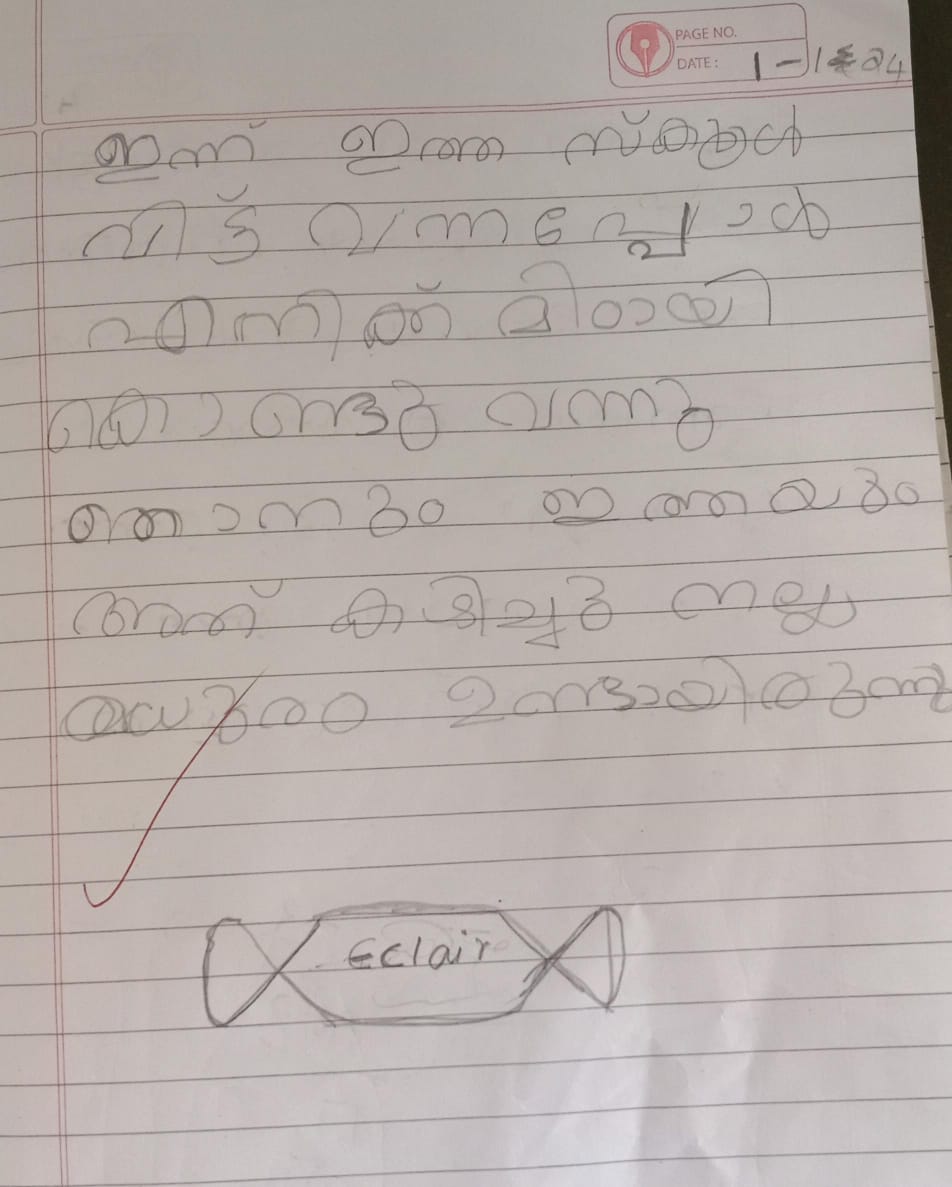 PAGE NO.
DATE: 1-1-24
ഇന്ന് ഇത്ത സ്കൂൾ
വിട്ട് വന്നപ്പോൾ
എനിക്ക് മിഠായി
കൊണ്ടു വന്നു
ഞാനും ഇത്തയും
അത് കടിച്ചു നല്ല
മധുരം ഉണ്ടായിരുന്നു
Eclair